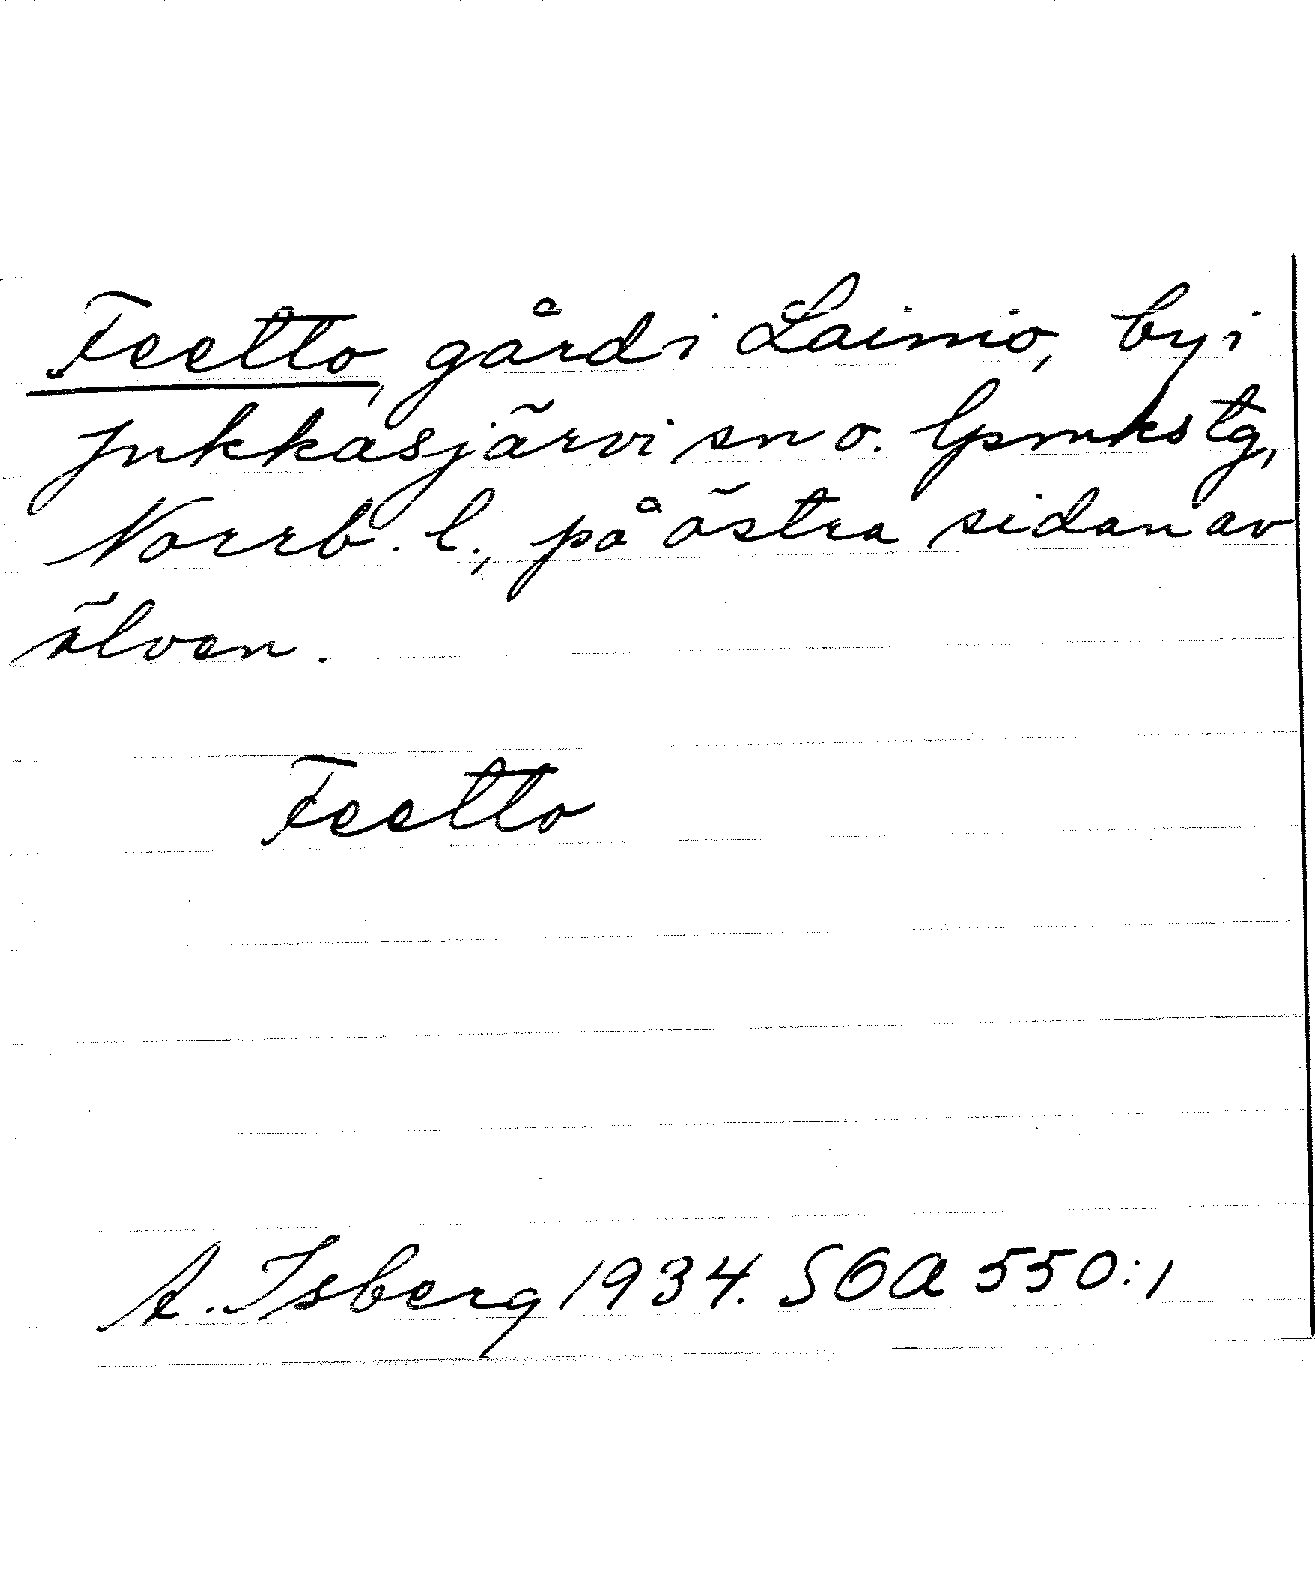 Feetto, gård i Lainio, by i
Jukkasjärvi sn o. lpmks tg,
Norrb. l., på östra sidan av
älven.
Feetto
A. Isberg 1934. SOA 550:1